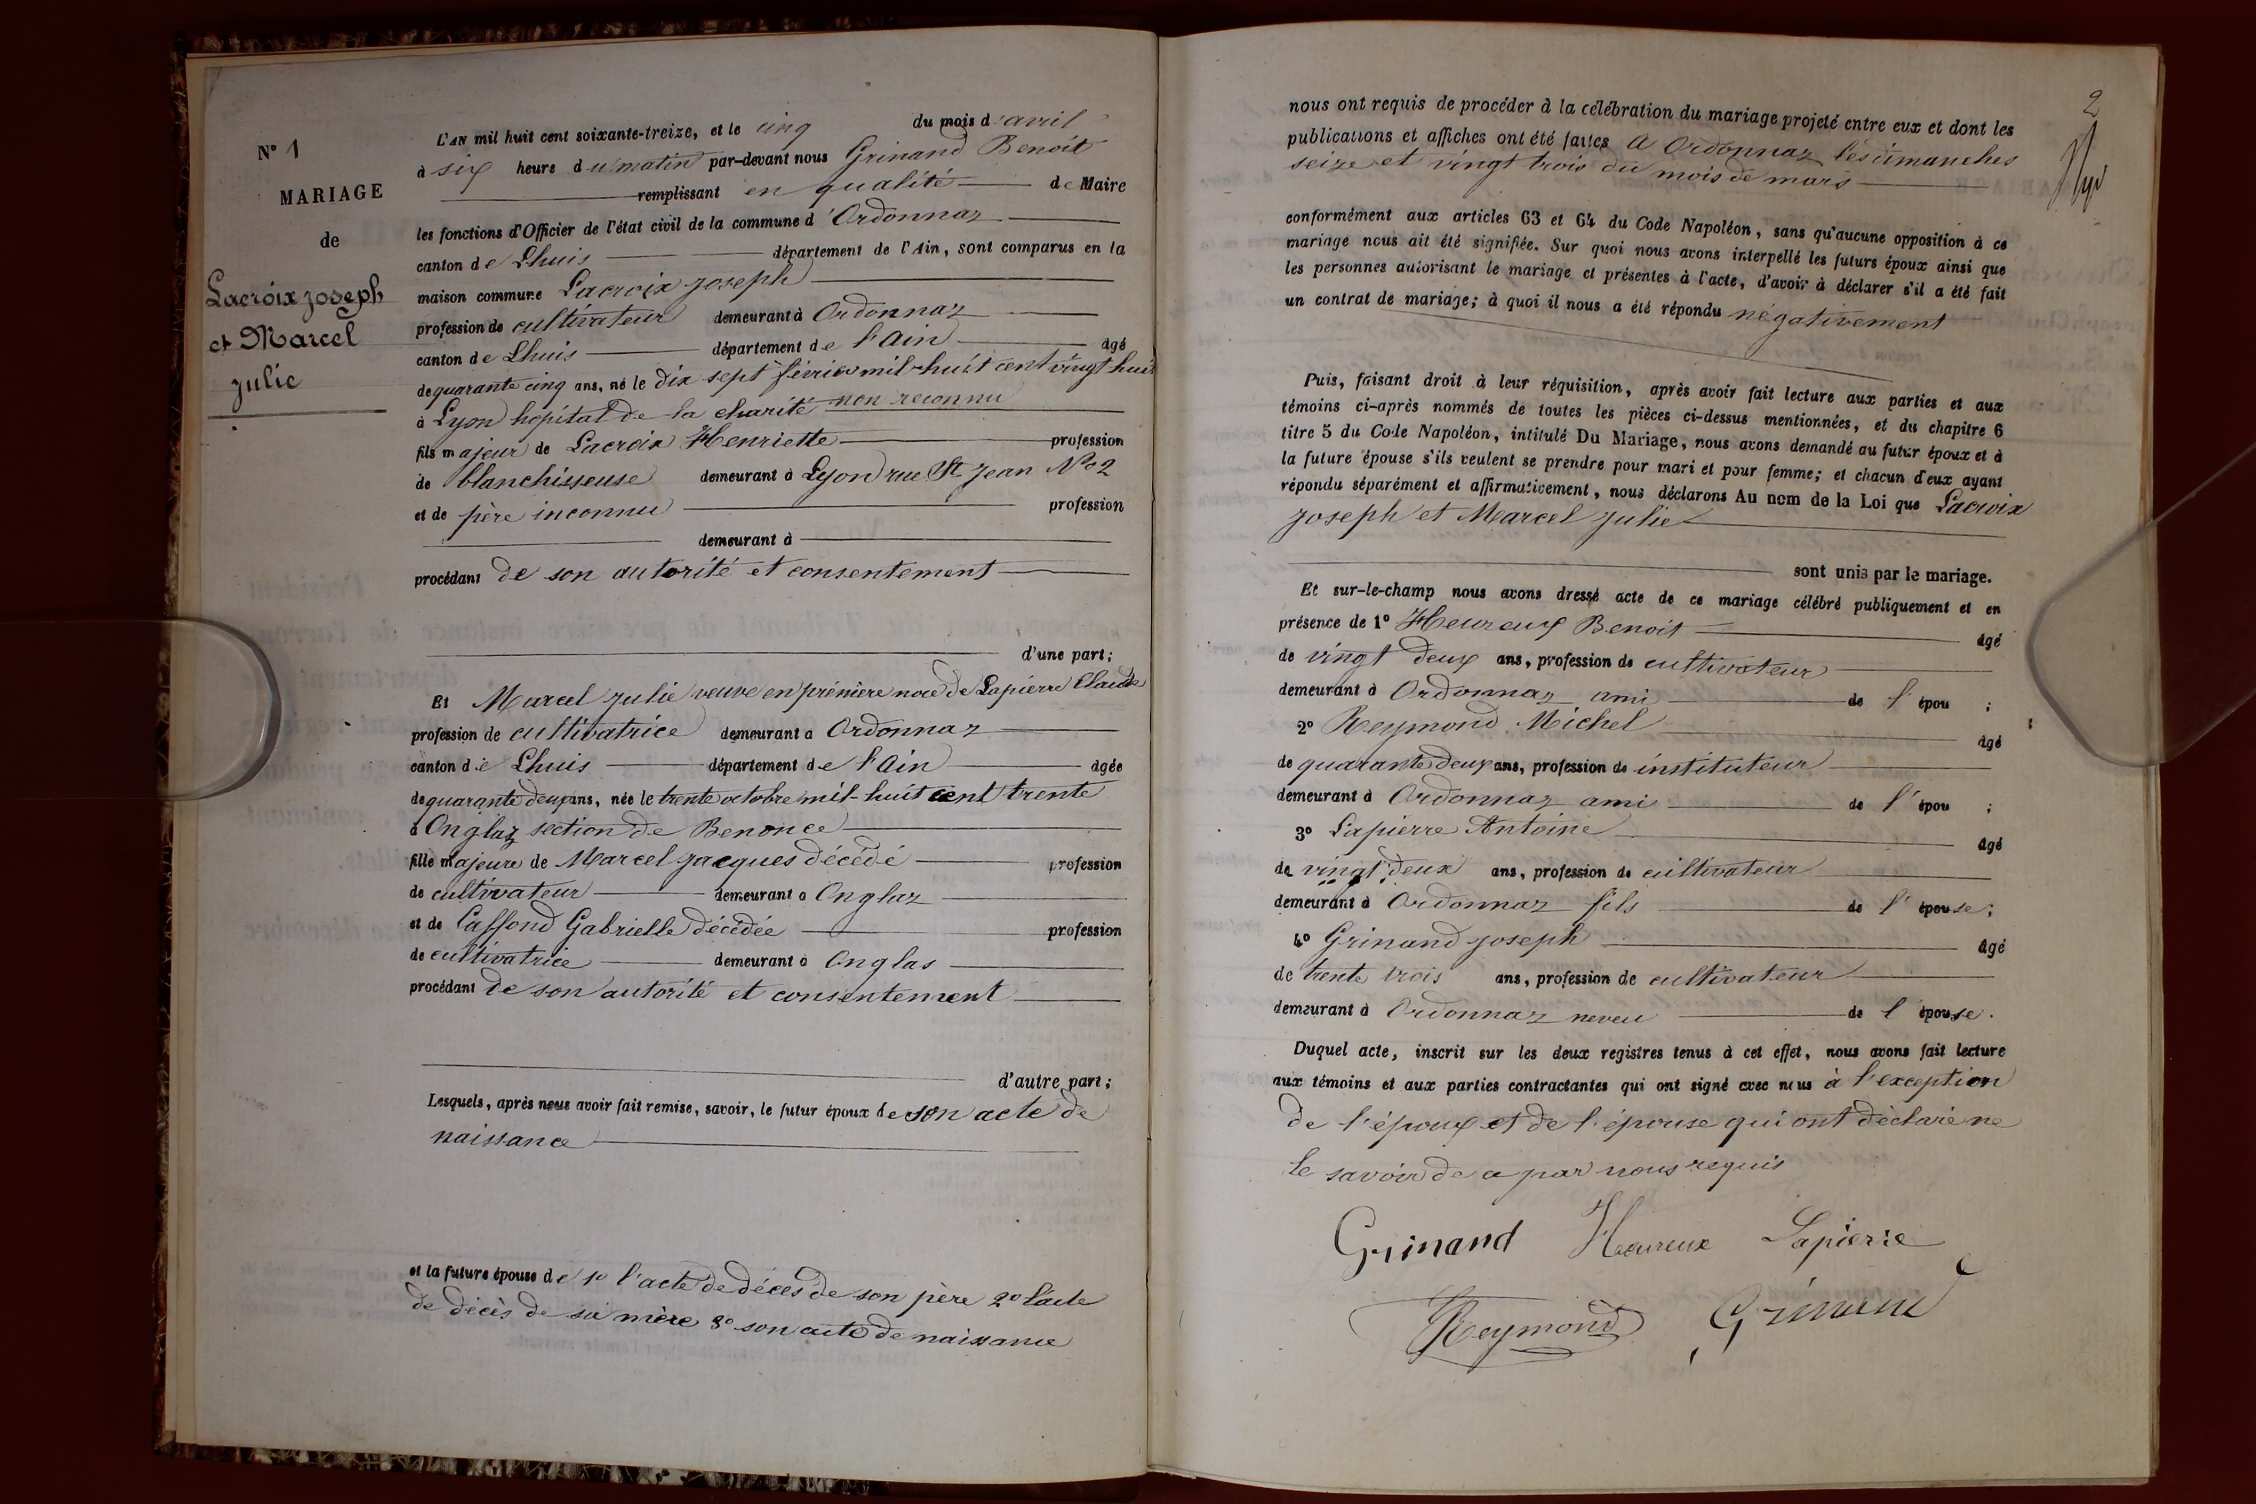 N° 1
MARIAGE
de
Lacroix Joseph
et Marcel
Julie
L'AN mil huit cent soixante-treize, et le cinq du mois d'avril
à six heure du matin par-devant nous Grinand Benoit
remplissant en qualité de Maire
les fonctions d'Officier de l'état civil de la commune d'Ordonnaz
canton de Lhuis département de l'Ain, sont comparus en la
maison commune Lacroix Joseph
profession de cultivateur demeurant à Ordonnaz
canton de Lhuis département de l'Ain âgé
de quarante cinq ans, né le dix sept février mil-huit cent vingt huit
à Lyon hopital de la charité non reconnu
fils majeur de Lacroix Henriette profession
de blanchisseuse demeurant à Lyon rue St Jean No 2
et de père inconnu profession
demeurant à
procédant de son autorité et consentement
d'une part;
Et Marcel Julie veuve en prémière noce de Lapierre Claude
profession de cultivatrice demeurant a Ordonnaz
canton de Lhuis département de l'Ain âgée
de quarante deux ans, née le trente octobre mil-huit cent trente
à Onglaz section de Benonce
fille majeure de Marcel Jacques décédé profession
de cultivateur demeurant a Onglaz
et de Caffond Gabrielle décédée profession
de cultivatrice demeurant à Onglas
procédant de son autorité et consentement
d'autre part;
Lesquels, après nous avoir fait remise, savoir, le futur époux de son acte de
naissance
et la future épouse de 1° l'acte de décès de son père 2° l'acte
de décès de sa mère 3° son acte de naissance
2
nous ont requis de procéder à la célébration du mariage projeté entre eux et dont les
publications et affiches ont été faites à Ordonnaz les dimanches
seize et vingt trois du mois de mars
conformément aux articles 63 et 64 du Code Napoléon, sans qu'aucune opposition à ce
mariage nous ait été signifiée. Sur quoi nous avons interpellé les futurs époux ainsi que
les personnes autorisant le mariage et présentes à l'acte, d'avoir à déclarer s'il a été fait
un contrat de mariage; à quoi il nous a été répondu négativement
Puis, faisant droit à leur réquisition, après avoir fait lecture aux parties et aux
témoins ci-après nommés de toutes les pièces ci-dessus mentionnées, et du chapitre 6
titre 5 du Code Napoléon, intitulé Du Mariage, nous avons demandé au futur époux et à
la future épouse s'ils veulent se prendre pour mari et pour femme; et chacun d'eux ayant
répondu séparément et affirmativement, nous déclarons Au nom de la Loi que Lacroix
Joseph et Marcel Julie
sont unis par le mariage.
Et sur-le-champ nous avons dressé acte de ce mariage célébré publiquement et en
présence de 1° Heureux Benoit âgé
de vingt deux ans, profession de cultivateur
demeurant à Ordonnaz ami de l'épou ;
2° Reymond Michel âgé
de quarante deux ans, profession de instituteur
demeurant à Ordonnaz ami de l'épou ;
3° Lapierre Antoine âgé
de vingt deux ans, profession de cultivateur
demeurant à Ordonnaz fils de l'épouse;
4° Grinand Joseph âgé
de trente trois ans, profession de cultivateur
demeurant à Ordonnaz neveu de l'épouse.
Duquel acte, inscrit sur les deux registres tenus à cet effet, nous avons fait lecture
aux témoins et aux parties contractantes qui ont signé avec nous à l'exception
de l'époux et de l'épouse qui ont déclaré ne
le savoir de ce par nous requis
Grinand Heureux Lapierre
Reymond Grinand